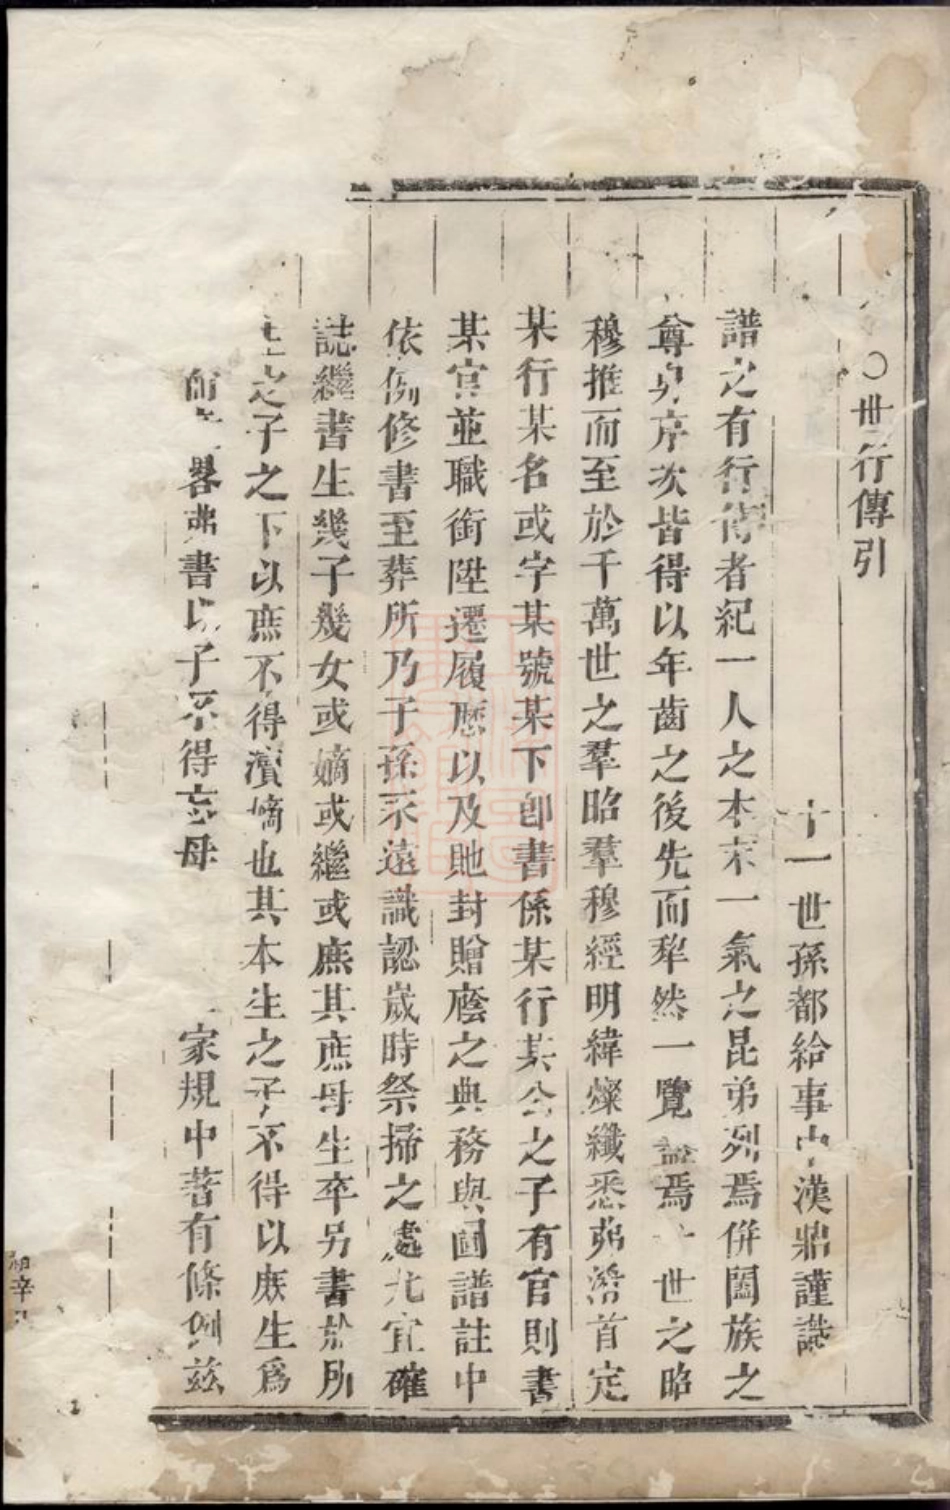 ○世行傳引
十一世孫都給事中漢鼎謹識
譜之有行傳者紀一人之本末一氣之昆弟列焉併闔族之
尊卑序次皆得以年齒之後先而犂然一覽焉一世之昭
穆推而至於千萬世之羣昭羣穆經明緯燦纖悉弗淆首定
某行某名或字某號某下卽書係某行某公之子有官則書
某官並職銜陞遷履歷以及貤封贈廕之典務與圖譜註中
依例修書至葬所乃子孫永遠識認歲時祭掃之處尤宜確
誌繼書生幾子幾女或嫡或繼或庶其庶母生卒另書於所
生之子之下以庶不得瀆嫡也其本生之子不得以庶生爲
畧弗書以子不得忘母
家規中著有條例茲